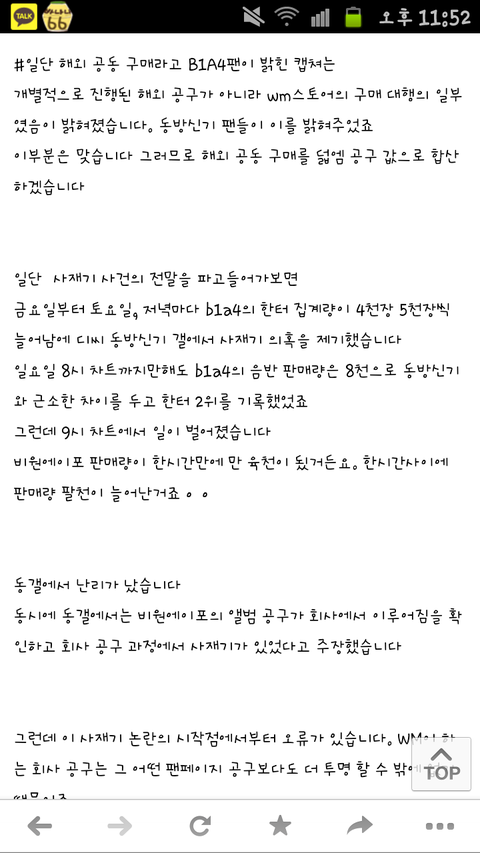 TALK
66
오후 11:52
#일단 해외 공동 구매라고 B1A4팬이 밝힌 캡쳐는
개별적으로 진행된 해외 공구가 아니라 wm스토어의 구매 대행의 일부
였음이 밝혀졌습니다. 동방신기 팬들이 이를 밝혀주었죠
이부분은 맞습니다 그러므로 해외 공동 구매를 덟엠 공구 값으로 합산
하겠습니다
일단 사재기 사건의 전말을 파고들어가보면
금요일부터 토요일, 저녁마다 b1a4의 한터 집계량이 4천장 5천장씩
늘어남에 디씨 동방신기 갤에서 사재기 의혹을 제기했습니다
일요일 8시 차트까지만해도 b1a4의 음반 판매량은 8천으로 동방신기
와 근소한 차이를 두고 한터 2위를 기록했었죠
그런데 9시 차트에서 일이 벌어졌습니다
비원에이포 판매량이 한시간만에 만 육천이 됬거든요. 한시간사이에
판매량 팔천이 늘어난거죠 。。
동갤에서 난리가 났습니다
동시에 동갤에서는 비원에이포의 앨범 공구가 회사에서 이루어짐을 확
인하고 회사 공구 과정에서 사재기가 있었다고 주장했습니다
그런데 이 사재기 논란의 시작점에서부터 오류가 있습니다. WM이 하
는 회사 공구는 그 어떤 팬페이지 공구보다도 더 투명 할 수 밖에
TOP